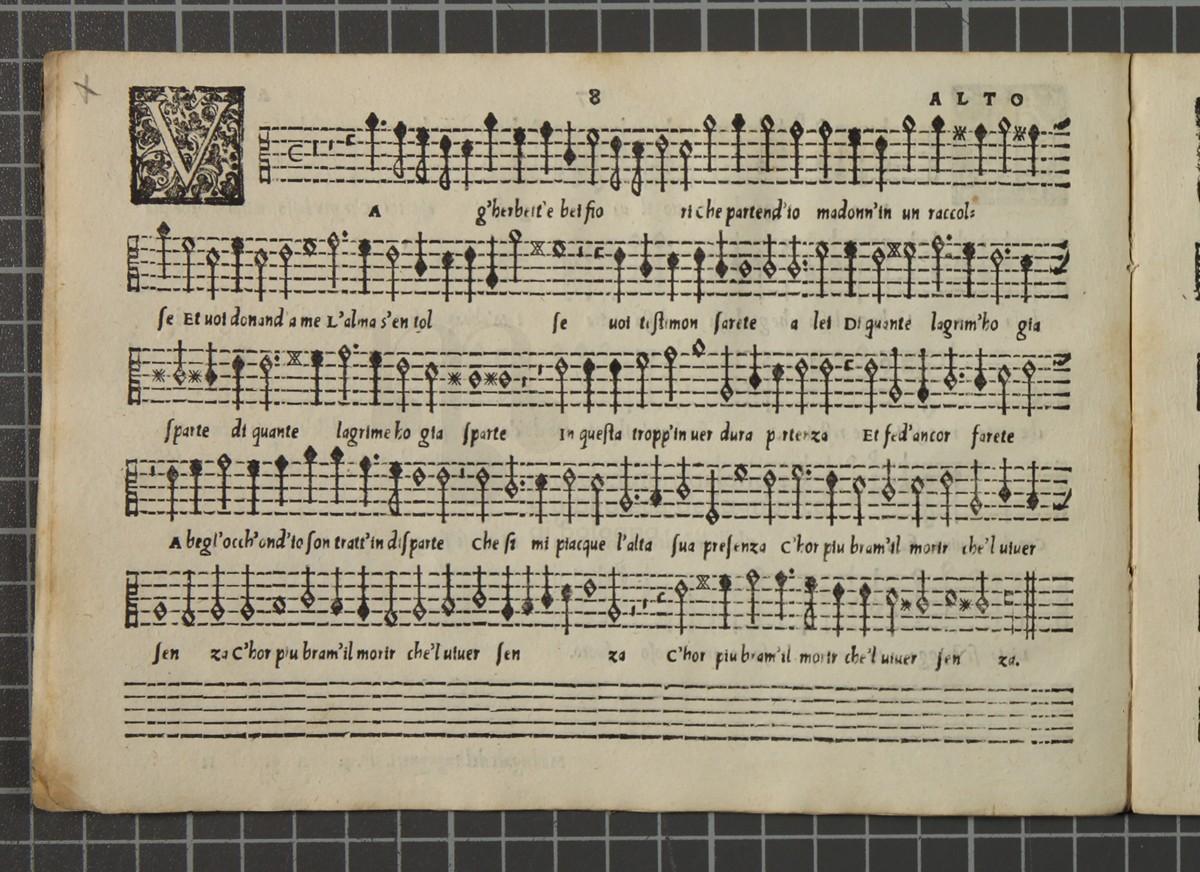 8 ALTO
V A g'herbett'e bei fio ri che partend'io madonn'in un raccol=
se Et uoi donand a me L'alma s'en tol se uoi tistimon sarete a lei Di quante lagrim'ho gia
sparte di quante lagrime ho gia sparte In questa tropp'in uer dura partenza Et fed'ancor farete
A begl'occh'ond'io son tratt'in disparte Che si mi piacque l'alta sua presenza C'hor piu bram'il morir che'l uiuer
sen za C'hor piu bram'il morir che'l uiuer sen za C'hor piu bram'il morir che'l uiuer sen za.